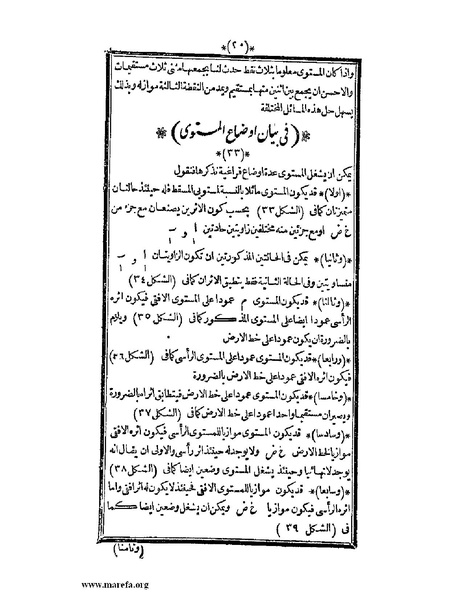 *(٢٠)*
واذا كان المستوى معلوما بثلاث نقط حدث لنا بجمعها مثنى ثلاث مستقيمات
والاحسن ان يجمع بين اثنين منها بمستقيم ويمد من النقطة الثالثة موازله وبذلك
يسهل حل هذه المسائل المختلفة
*(فى بيان اوضاع المستوى)*
*(٣٣)*
يمكن ان يشغل المستوى عدة اوضاع فراغية نذكرها فنقول
*(اولا)* قد يكون المستوى مائلا بالنسبة لمستويى المسقط فله حينئذ حالتان
متميزتان كمافى (الشكل ٣٣) بحسب كون الاثرين يصنعان مع جزء من
غ ض او مع جزئين منه مختلفين زاويتين حادتين ا و ب
*(وثانيا)* يمكن فى الحالتين المذكورتين ان تكون الزاويتان ا و ب
متساويتين وفى الحالة الثانية فقط ينطبق الاثران كمافى (الشكل ٣٤)
*(وثالثا)* قد يكون المستوى م عمودا على المستوى الافقى فيكون اثره
الرأسى عمودا ايضا على المستوى المذكور كمافى (الشكل ٣٥) ويلزم
بالضرورة ان يكون عمودا على خط الارض
*(ورابعا)* قد يكون المستوى عمودا على المستوى الرأسى كمافى (الشكل ٣٦)
فيكون اثره الافقى عمودا على خط الارض بالضرورة
*(وخامسا)* قد يكون المستوى عمودا على خط الارض فيتطابق اثراه بالضرورة
ويصيران مستقيما واحدا عمودا على خط الارض كمافى (الشكل ٣٧)
*(وسادسا)* قد يكون المستوى موازيا للمستوى الرأسى فيكون اثره الافقى
موازيا لخط الارض غ ض ولا يوجد له حينئذ اثر رأسى والاولى ان يقال انه
يوجد لانهائيا وحينئذ يشغل المستوى وضعين ايضا كمافى (الشكل ٣٨)
*(وسابعا)* قد يكون موازيا للمستوى الافقى فحينئذ لا يكون له اثر افقى واما
اثره الرأسى فيكون موازيا غ ض ويمكن ان يشغل وضعين ايضا كما
فى (الشكل ٣٩)
(وثامنا)
www.marefa.org